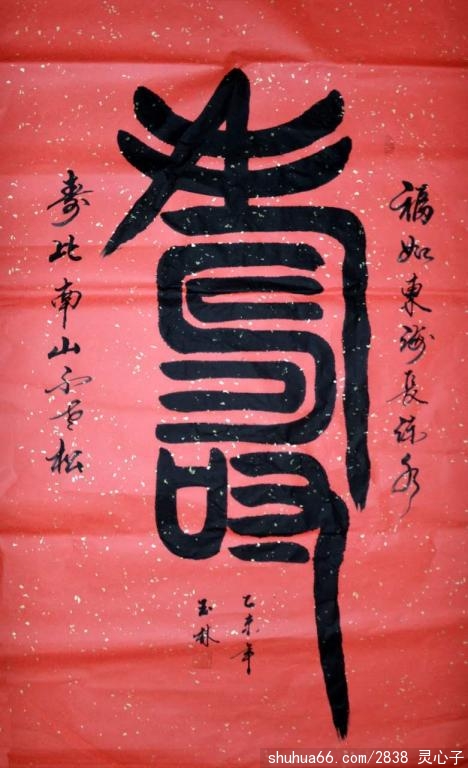 福如東海長流水
壽
壽比南山不老松
乙未年
玉林
shuhua66.com/2838 灵心子